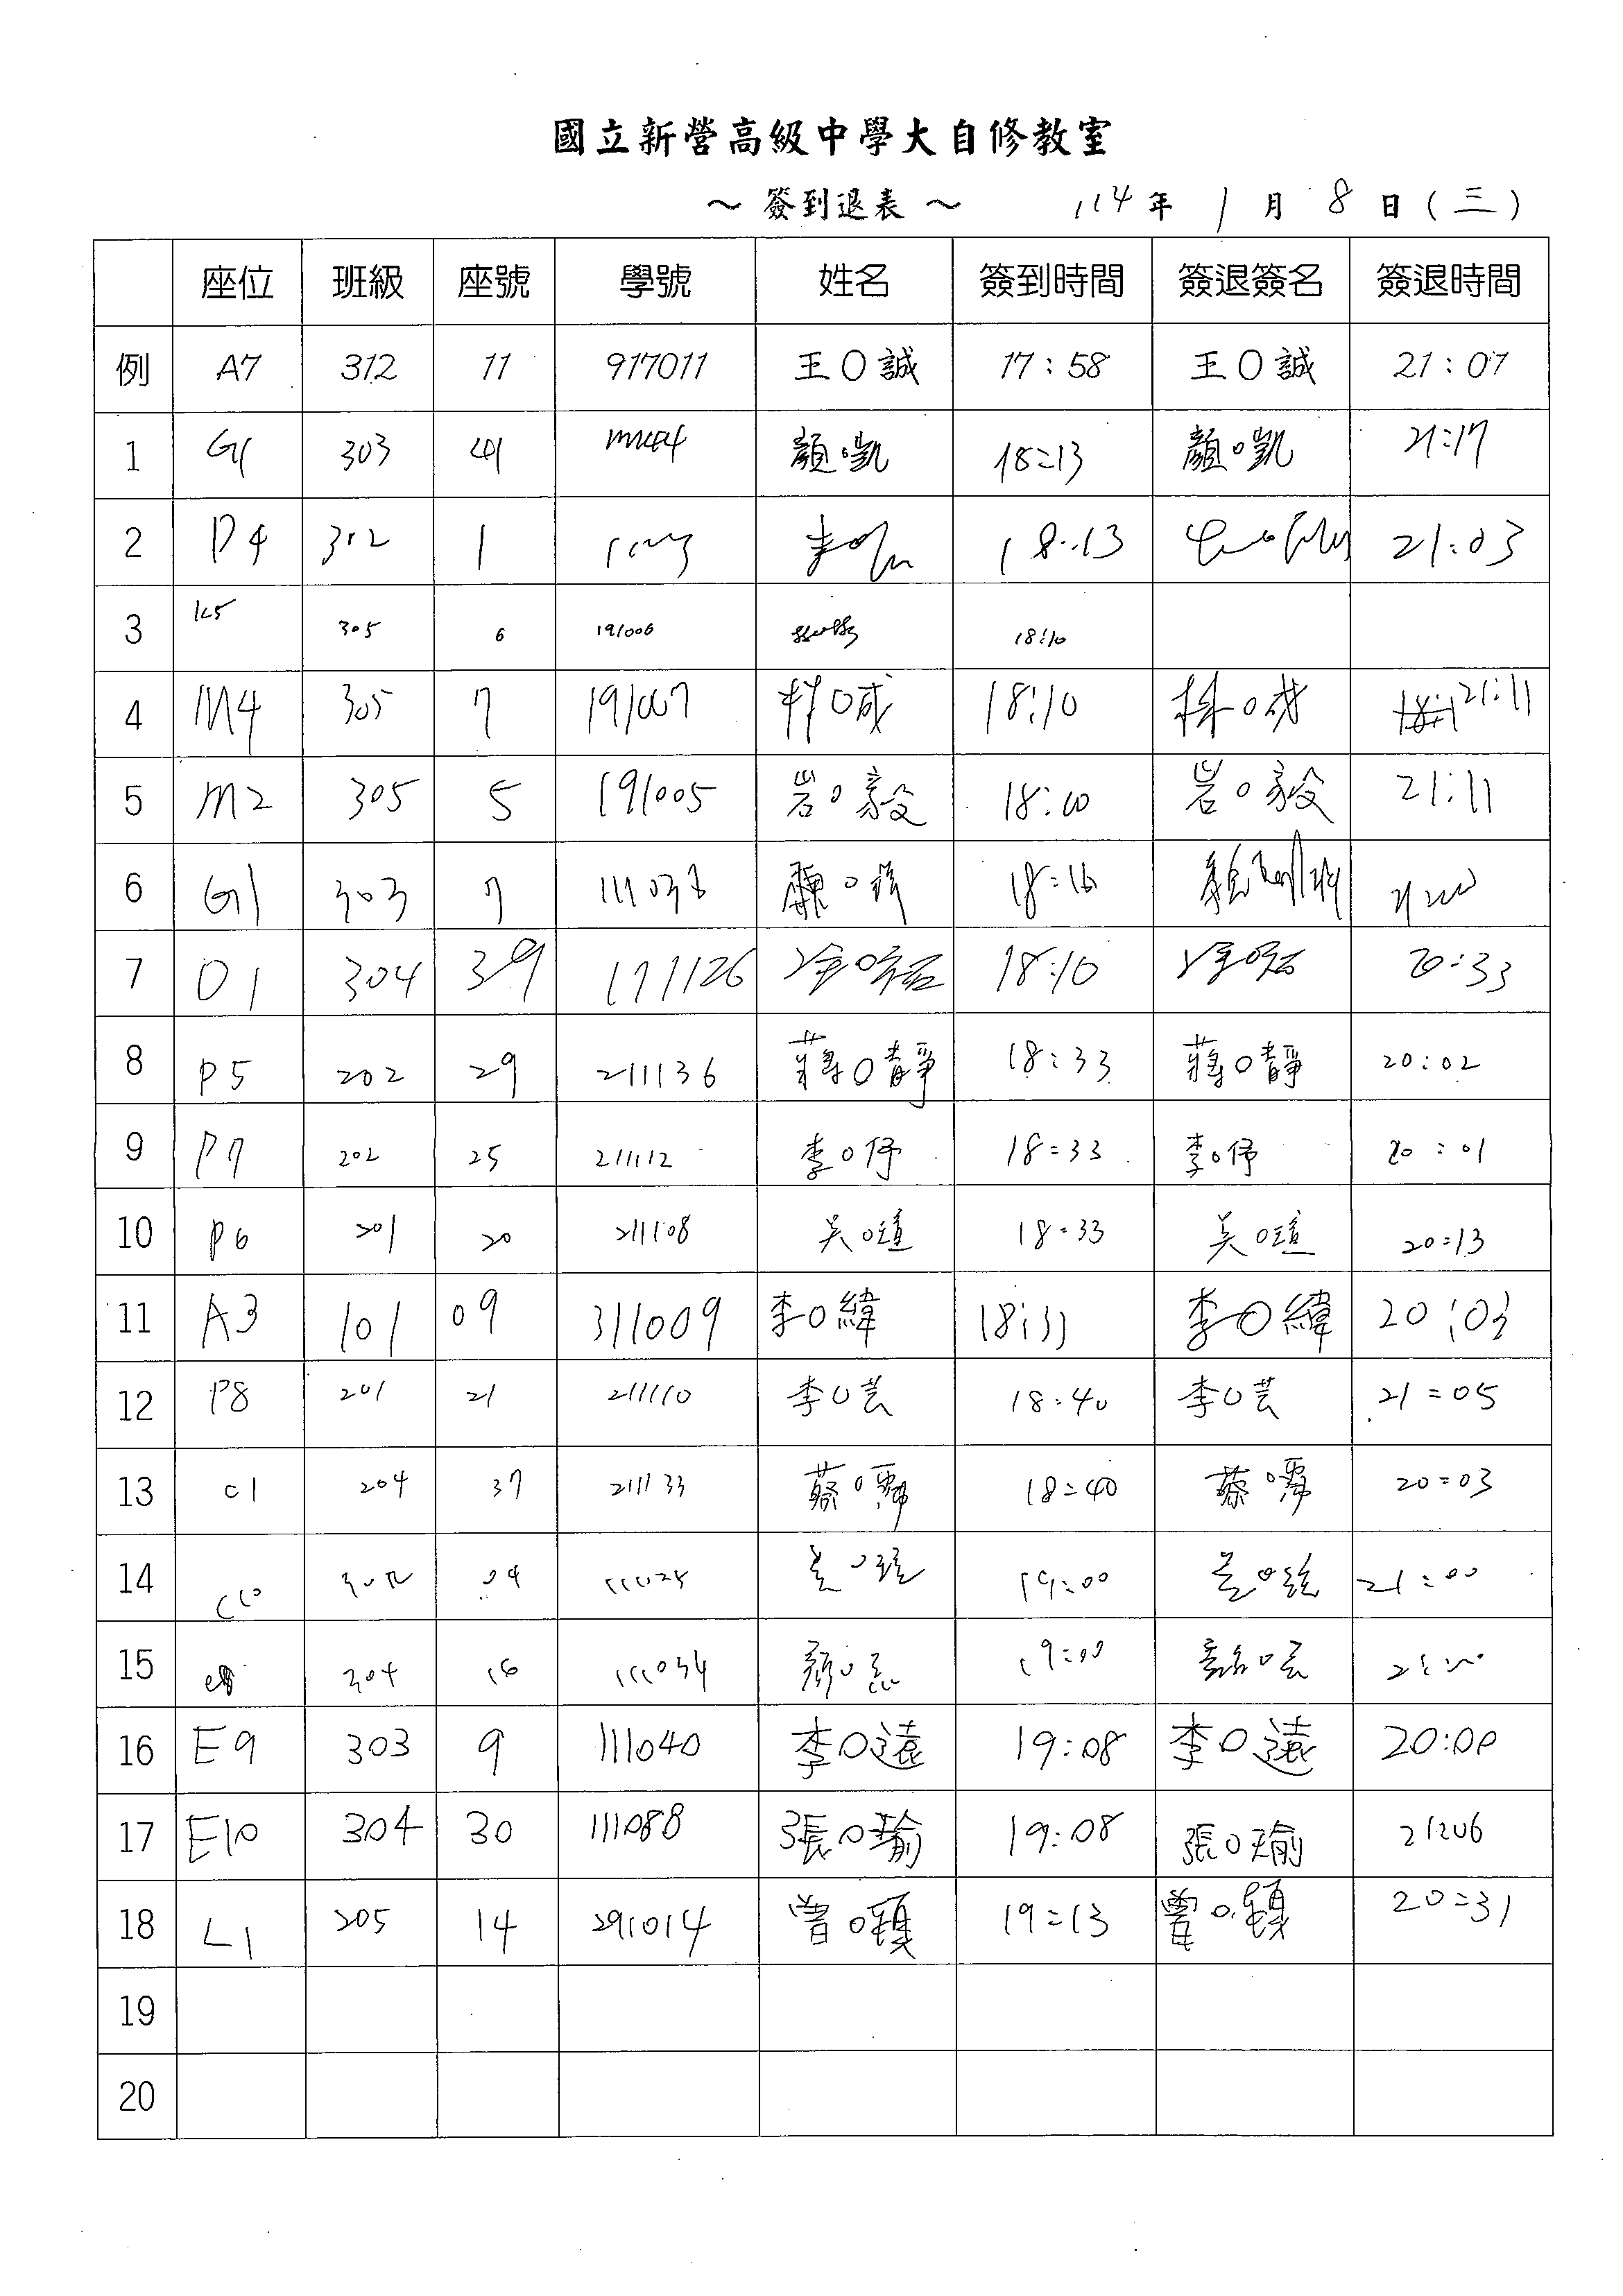 國立新營高級中學大自修教室
～ 簽到退表 ～ 114 年 1 月 8 日 (三)
座位 班級 座號 學號 姓名 簽到時間 簽退簽名 簽退時間
例 A7 312 11 917011 王O誠 17:58 王O誠 21:07
1 G1 303 41 顏O凱 18:13 顏O凱 21:17
2 P4 302 1 18:13 21:03
3 K5 305 6 191006 18:10
4 M4 305 7 191007 林O成 18:10 林O成 21:11
5 M2 305 5 191005 岩O毅 18:10 岩O毅 21:11
6 G1 303 7 18:16
7 O1 304 39 18:10 20:33
8 P5 202 29 211136 蔣O靜 18:33 蔣O靜 20:02
9 P7 202 25 211112 李O伃 18:33 李O伃 20:01
10 P6 201 20 211108 吴O萱 18:33 吴O萱 20:13
11 A3 101 09 311009 李O緯 18:31 李O緯 20:03
12 P8 201 21 211110 李O芸 18:40 李O芸 21:05
13 C1 204 37 211133 蔡O霈 18:40 蔡O霈 20:03
14 C10 302 04 19:00 21:00
15 304 16 111034 19:00
16 E9 303 9 111040 李O遠 19:08 李O遠 20:00
17 E10 304 30 111088 張O瑜 19:08 張O瑜 21:06
18 L1 205 14 291014 曾O鎮 19:13 曾O鎮 20:31
19
20